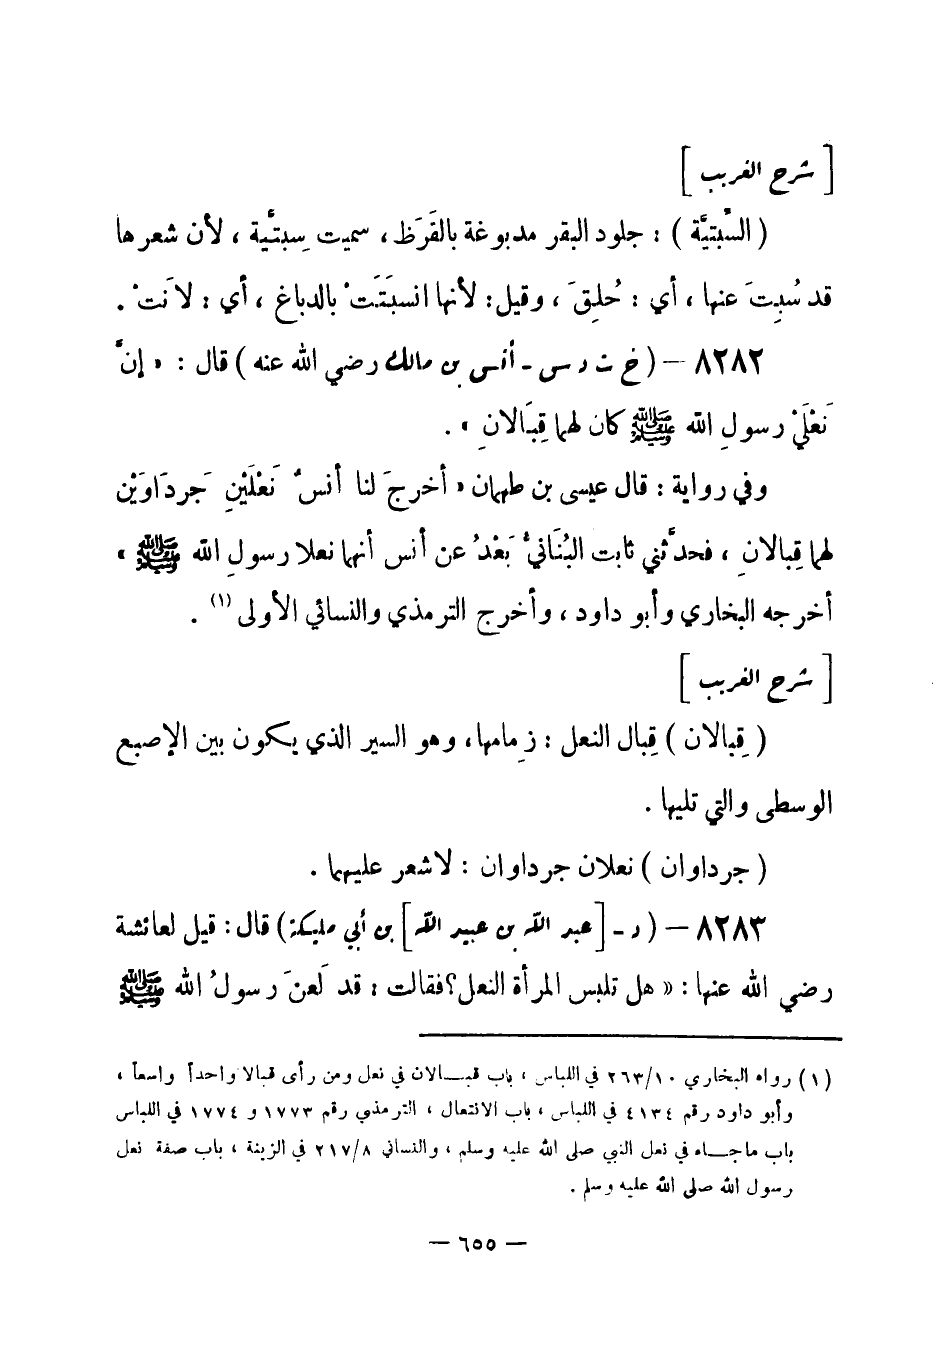 [ شرح الغريب ]
( السِّبتيَّة ) : جلود البقر مدبوغة بالقَرَظ ، سميت سِبتيَّة ، لأن شعرها
قد سُبِتَ عنها ، أي : حُلِقَ ، وقيل : لأنها انسبَتَتْ بالدباغ ، أي : لانَتْ .
٨٢٨٢ — ( خ ت د س - أنس بن مالك رضي الله عنه ) قال : « إنَّ
نَعْلَيْ رسولِ الله ﷺ كان لهما قِبَالانِ » .
وفي رواية : قال عيسى بن طهمان « أخرجَ لنا أنسٌ نَعْلَيْنِ جَرداوَيْن
لهما قِبالانِ ، فحدَّثني ثابت البُنَانيُّ بَعْدُ عن أنس أنهما نعلا رسولِ الله ﷺ »
أخرجه البخاري وأبو داود ، وأخرج الترمذي والنسائي الأولى (١) .
[ شرح الغريب ]
( قِبالان ) قِبال النعل : زِمامها ، وهو السير الذي يكون بين الإصبع
الوسطى والتي تليها .
( جرداوان ) نعلان جرداوان : لاشعر عليهما .
٨٢٨٣ — ( د - [ عبد الله بن عبيد الله ] بن أبي مليكة ) قال : قيل لعائشة
رضي الله عنها : « هل تلبس المرأة النعل؟ فقالت : قد لَعنَ رسولُ الله ﷺ
(١) رواه البخاري ٢٦٣/١٠ في اللباس ، باب قبالان في نعل ومن رأى قبالا واحداً واسعاً ،
وأبو داود رقم ٤١٣٤ في اللباس ، باب الانتعال ، الترمذي رقم ١٧٧٣ و ١٧٧٤ في اللباس
باب ماجاء في نعل النبي صلى الله عليه وسلم ، والنسائي ٢١٧/٨ في الزينة ، باب صفة نعل
رسول الله صلى الله عليه وسلم .
— ٦٥٥ —